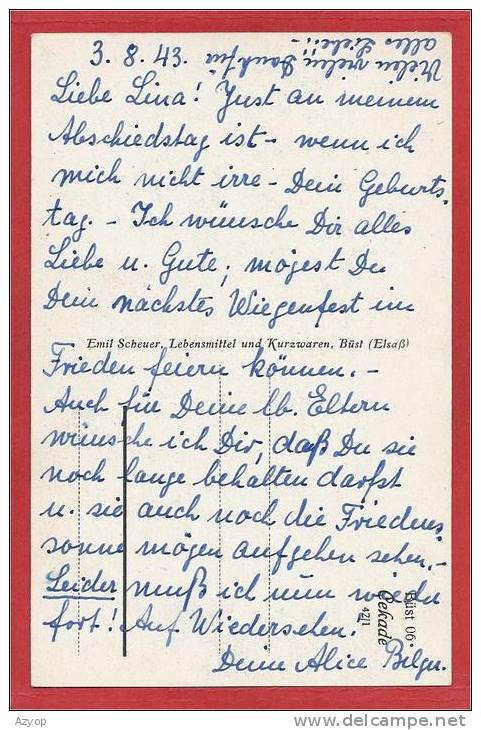 3. 8. 43.
Vielen vielen Dank für
alles Liebe!! -
Liebe Lina! Just an meinem
Abschiedstag ist - wenn ich
mich nicht irre - Dein Geburts-
tag. - Ich wünsche Dir alles
Liebe u. Gute; mögest Du
Dein nächstes Wiegenfest im
Emil Scheuer, Lebensmittel und Kurzwaren, Büst (Elsaß)
Frieden feiern können. -
Auch für Deine lb. Eltern
wünsche ich Dir, daß Du sie
noch lange behalten darfst
u. sie auch noch die Friedens-
sonne mögen aufgehen sehen. -
Leider muß ich nun wieder
fort! Auf Wiedersehen.
Deine Alice Bilger.
Büst 06
Cekade
42/1
Azyop
http://www.delcampe.net